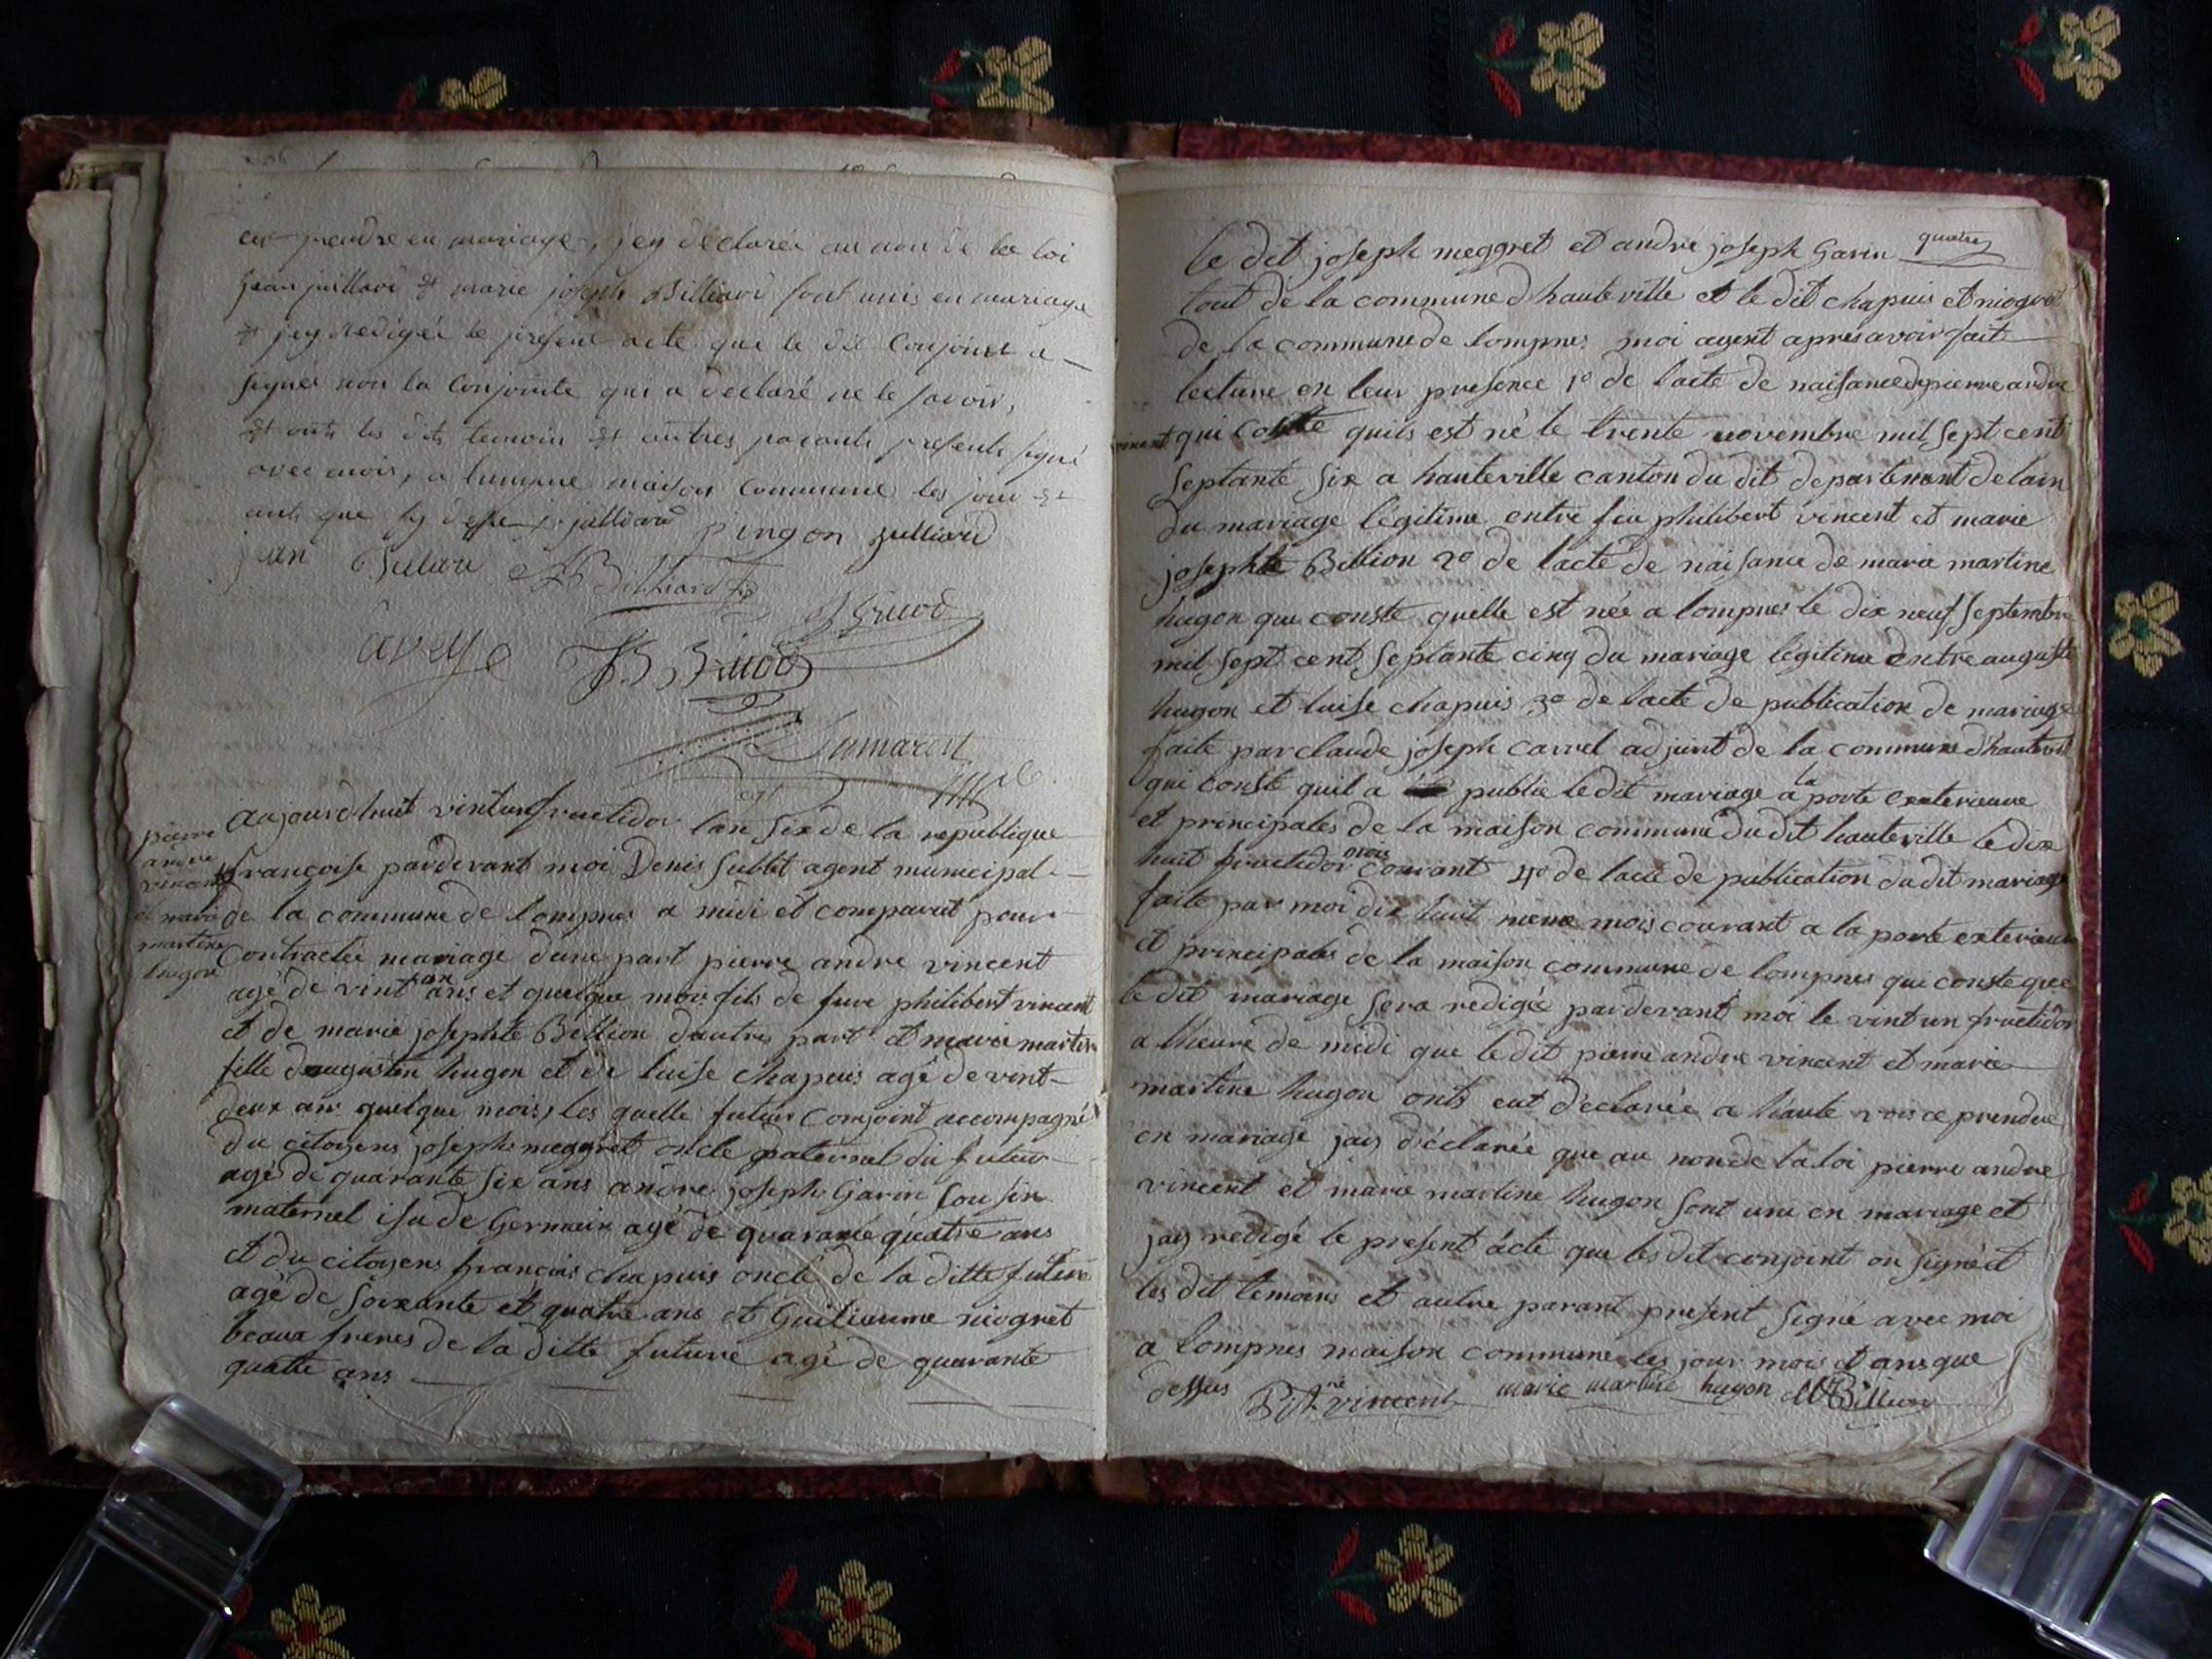 prendre en mariage, j'ey declarée au non de la loi
jean juillard & marie joseph Billiard sont unis en mariage
& jey Redigée le present acte que le dit Conjoint a
signer non la Conjointe qui a declaré ne le savoir,
& onts les dits temoin & autres parants presents signé
avec moi, a lompne maison Commune les jour &
ans que dessus julliard pingon julliard
jean Billiard
aveyle JB Bruod
Dumarest
pierre
andre
vincent
et marie
martine
hugon
aujourdhuit vintun fructidor lan six de la republique
françoise pardevant moi Denis Sublet agent municipal
de la commune de lompnes a midi et comparut pour
Contractée mariage dune part pierre andre vincent
agé de vint un ans et quelque mois fils de fuve philibert vincent
et de marie josephte Billion dautre part et marie martine
fille daugustin hugon et de luise chapuis agé de vint
deux ans quelque mois, les quelle futur conjoint accompagné
du citoyens joseph meggret oncle paternel du futur
agé de quarante six ans andre joseph Garin Cousin
maternel isu de Germain agé de quarante quatre ans
et du citoyens francois chapuis oncle de la ditte future
agé de soixante et quatre ans et Guiliaume niogret
beaux freres de la ditte future agé de quarante
quatre ans
quatre
le dit joseph meggret et andre joseph Garin
tout de la commune d'hauteville et le dit chapuis et niogret
de la commune de lompnes moi agent apres avoir fait
lecture en leur presence 1º de lacte de naisance de pierre andre
vincent qui Coste quils est né le trente novembre mil sept cent
septante six a hauteville canton du dit departement de lain
du mariage légitime entre feu philibert vincent et marie
josephte Billion 2º de lacte de naisance de marie martine
hugon qui conste quelle est née a lompnes le dix neuf septembre
mil sept cent septante cinq du mariage légitime entre auguste
hugon et luise chapuis 3º de lacte de publication de mariage
faite par claude joseph carrel adjoint de la commune d'hautevil
qui conste quil a publie le dit mariage a la porte exterieure
et principales de la maison commune du dit hauteville le dix
huit fructidor mois courant 4º de lacte de publication du dit mariage
faite par moi dix huit meme mois courant a la porte exterieur
et principales de la maison commune de lompnes qui conste que
le dit mariage sera redigée pardevant moi le vint un fructidor
a lheure de midi que le dit pierre andre vincent et marie
martine hugon onts eut déclarée a haute voix ce prendre
en mariage jays déclarée que au non de la loi pierre andre
vincent et marie martine hugon sont uni en mariage et
jays redigé le present acte que les dit conjoint on signé et
les dit temoins et autre parant present signé avec moi
a lompnes maison commune les jour mois et ans que
dessus vincent marie martine hugon Billion